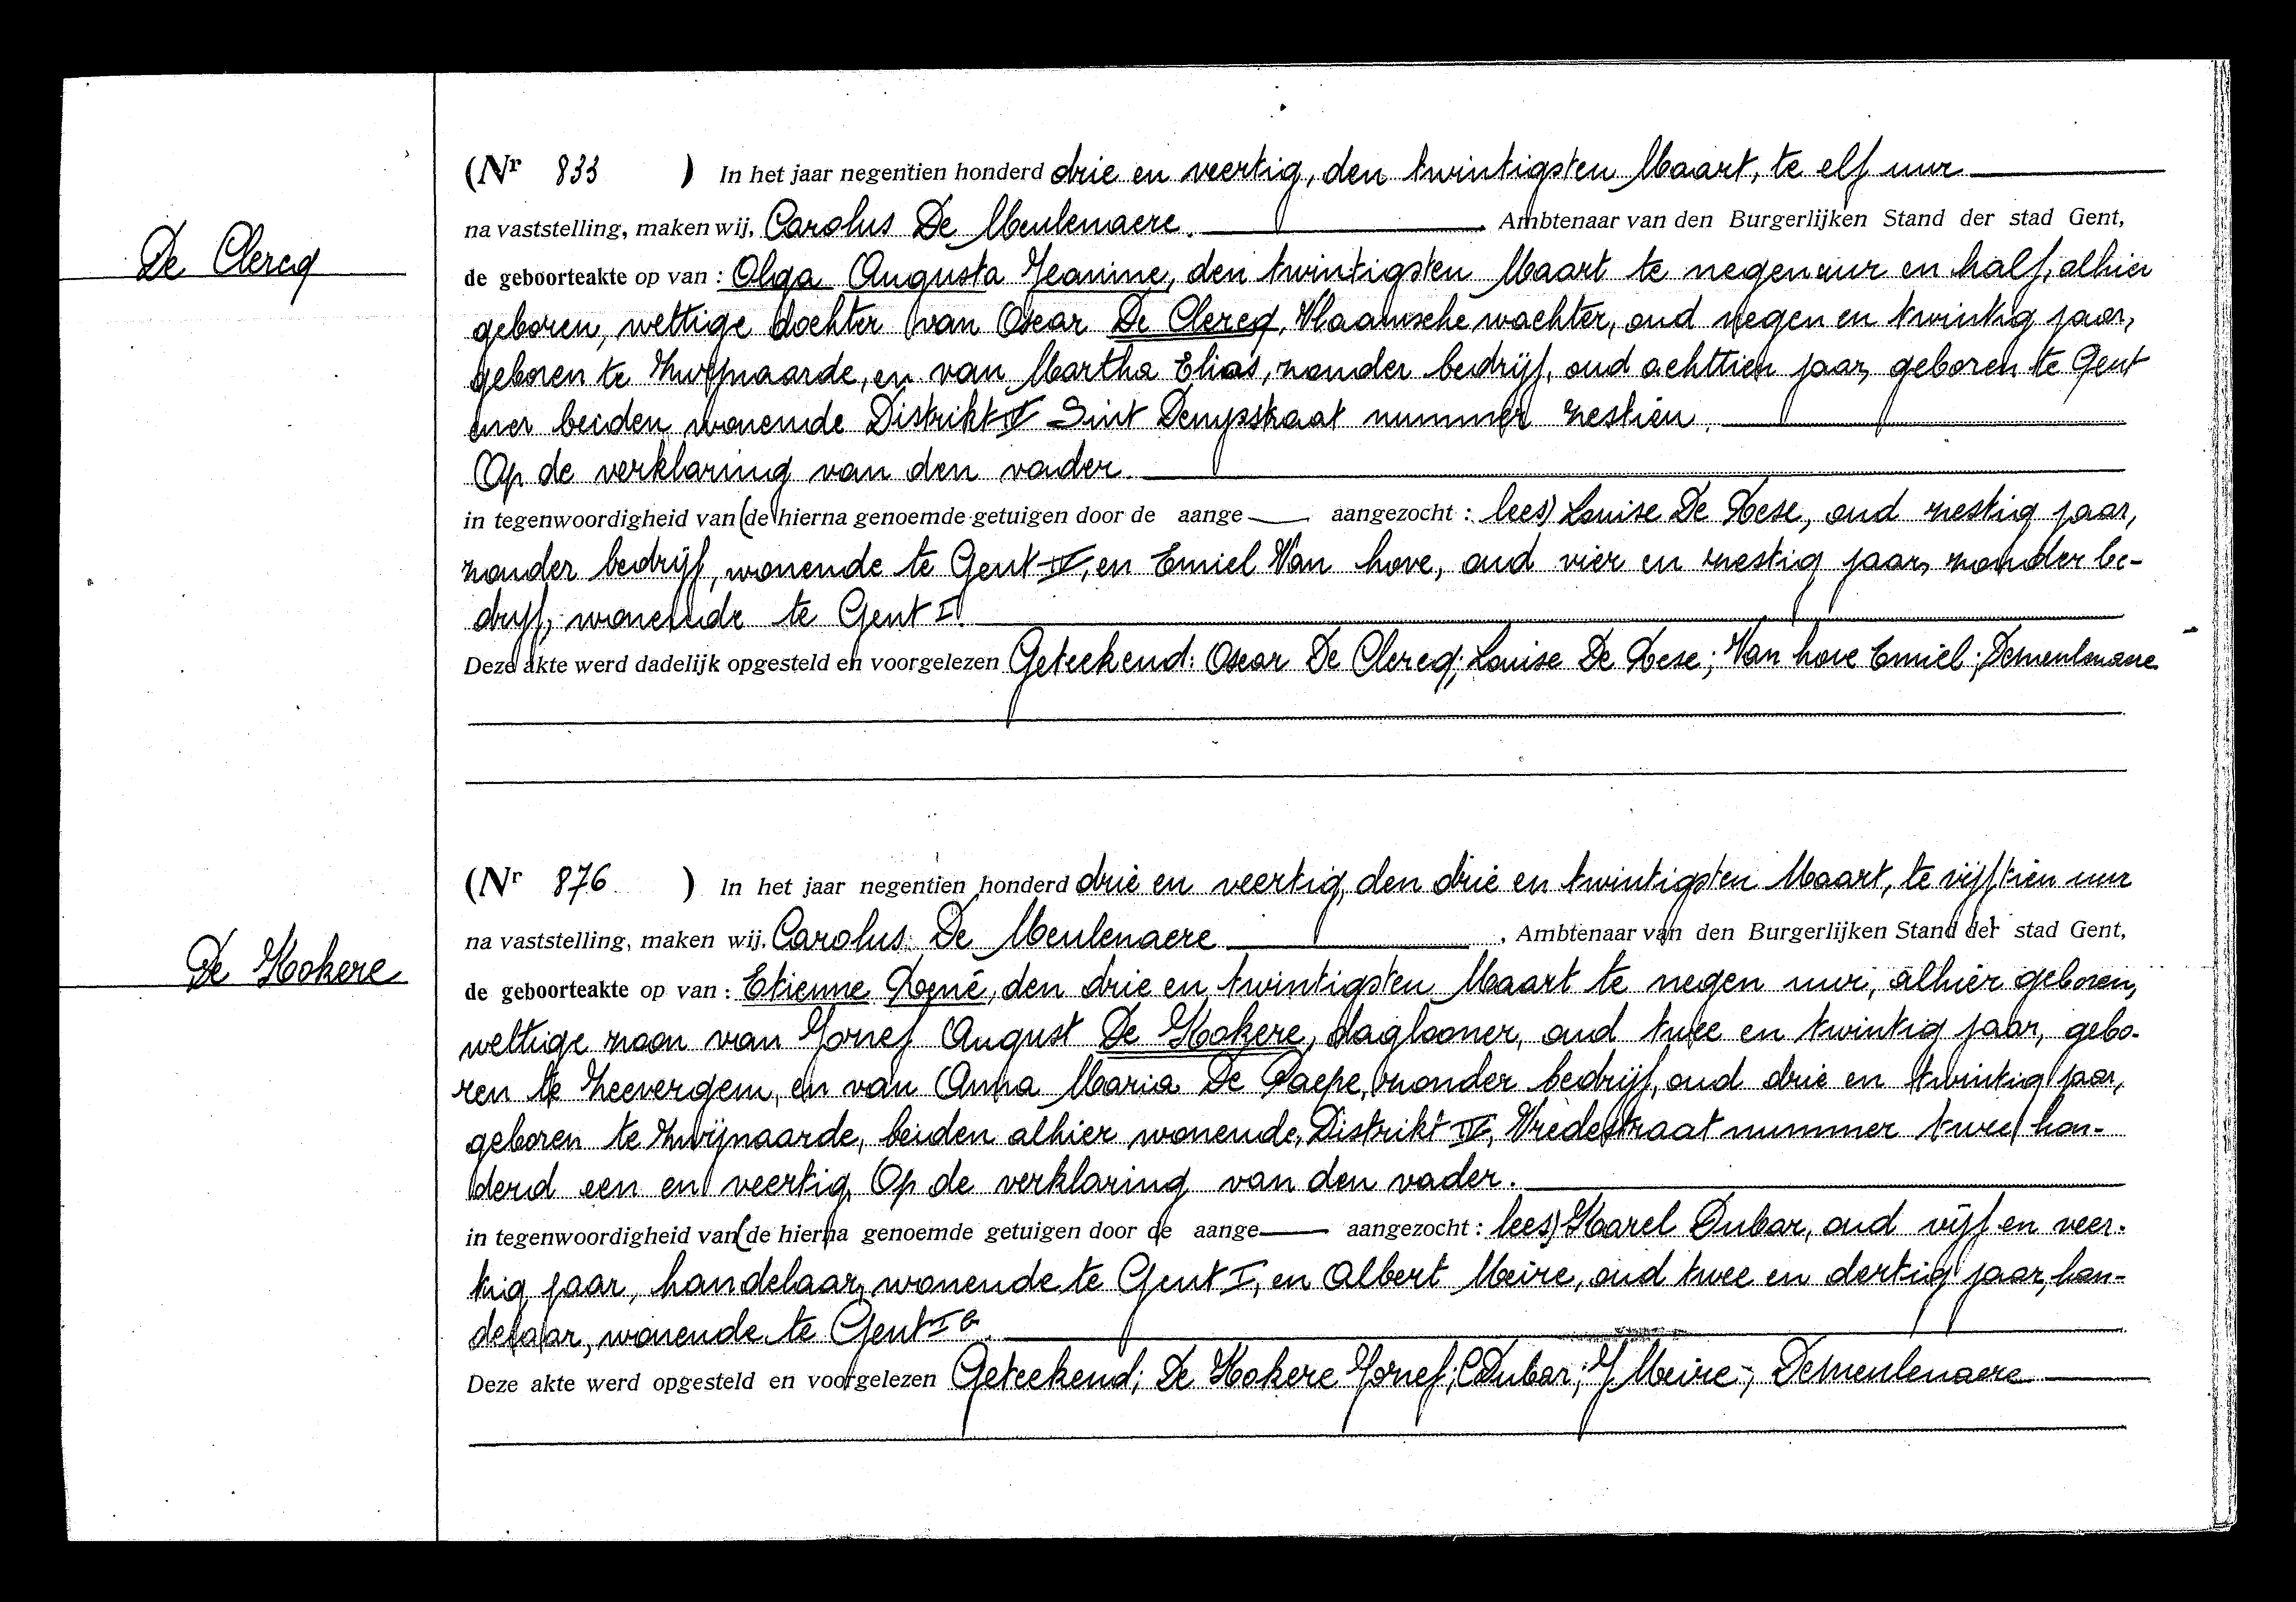 (Nr 833 ) In het jaar negentien honderd drie en veertig, den twintigsten Maart, te elf uur
na vaststelling, maken wij, Carolus De Meulenaere. Ambtenaar van den Burgerlijken Stand der stad Gent,
De Clercq
de geboorteakte op van : Olga Augusta Jeanine, den twintigsten Maart te negen uur en half, alhier
geboren, wettige dochter van Oscar De Clercq, Vlaamsche wachter, oud negen en twintig jaar,
geboren te Zwijnaarde, en van Martha Elias, zonder bedrijf, oud achttien jaar, geboren te Gent
beiden wonende Distrikt IV Sint Denysstraat nummer zestien.
Op de verklaring van den vader.
in tegenwoordigheid van (de hierna genoemde getuigen door de aange aangezocht : lees) Louise De Rese, oud zestig jaar,
zonder bedrijf, wonende te Gent IV, en Emiel Van hove, oud vier en zestig jaar, zonder be-
drijf, wonende te Gent I.
Deze akte werd dadelijk opgesteld en voorgelezen Geteekend: Oscar De Clercq; Louise De Rese; Van hove Emiel; Demeulenaere
(Nr 876 ) In het jaar negentien honderd drie en veertig, den drie en twintigsten Maart, te vijftien uur
na vaststelling, maken wij, Carolus De Meulenaere , Ambtenaar van den Burgerlijken Stand der stad Gent,
De Kokere
de geboorteakte op van : Etienne René, den drie en twintigsten Maart te negen uur, alhier geboren,
wettige zoon van Jozef August De Kokere, daglooner, oud twee en twintig jaar, gebo-
ren te Zeevergem, en van Anna Maria De Paepe, zonder bedrijf, oud drie en twintig jaar,
geboren te Zwijnaarde, beiden alhier wonende, Distrikt IV, Vredestraat nummer twee hon-
derd een en veertig. Op de verklaring van den vader.
in tegenwoordigheid van (de hierna genoemde getuigen door de aange aangezocht : lees) Karel Dubar, oud vijf en veer-
tig jaar, handelaar, wonende te Gent I, en Albert Meire, oud twee en dertig jaar, han-
delaar, wonende te Gent I
Deze akte werd opgesteld en voorgelezen Geteekend; De Kokere Jozef; C Dubar; J Meire; Demeulenaere